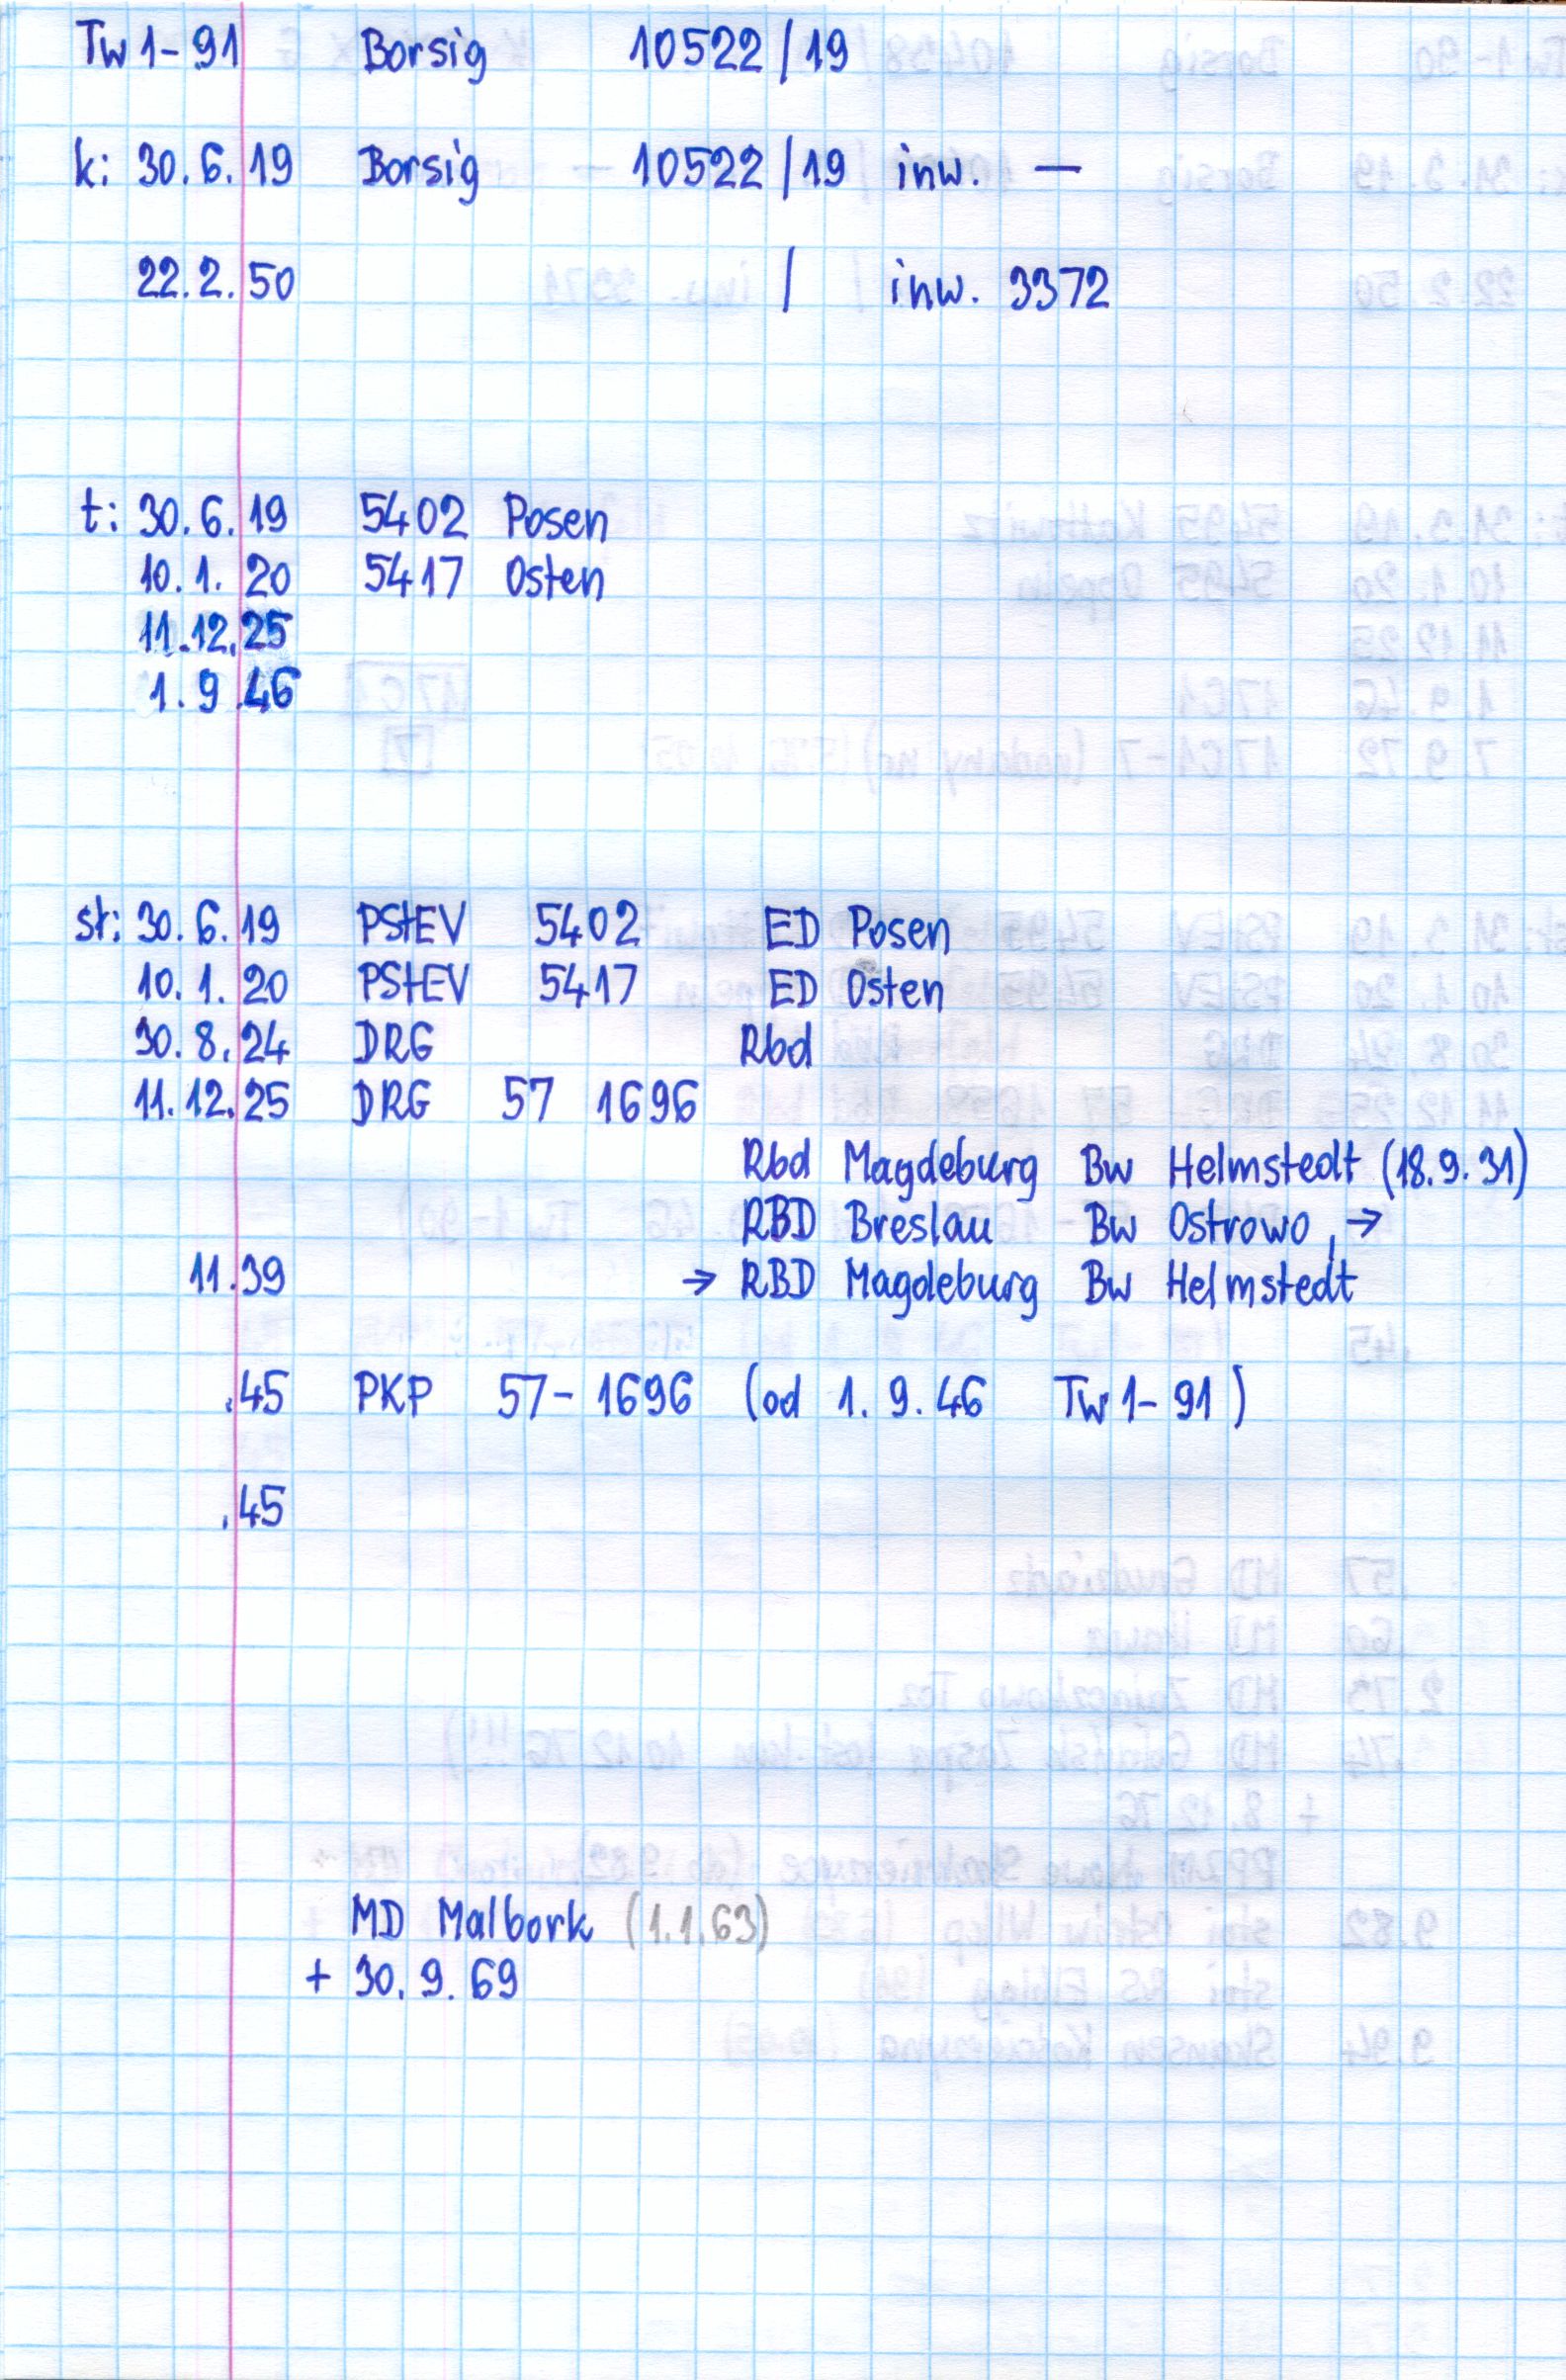 Tw 1-91 Borsig 10522/19
k: 30.6.19 Borsig 10522/19 inw. —
22.2.50 / inw. 3372
t: 30.6.19 5402 Posen
10.1.20 5417 Osten
11.12.25
1.9.46
st: 30.6.19 PStEV 5402 ED Posen
10.1.20 PStEV 5417 ED Osten
30.8.24 DRG Rbd
11.12.25 DRG 57 1696
Rbd Magdeburg Bw Helmstedt (18.9.31)
RBD Breslau Bw Ostrowo, →
11.39 → RBD Magdeburg Bw Helmstedt
.45 PKP 57-1696 (od 1.9.46 Tw 1-91)
.45
MD Malbork (1.1.63)
+ 30.9.69